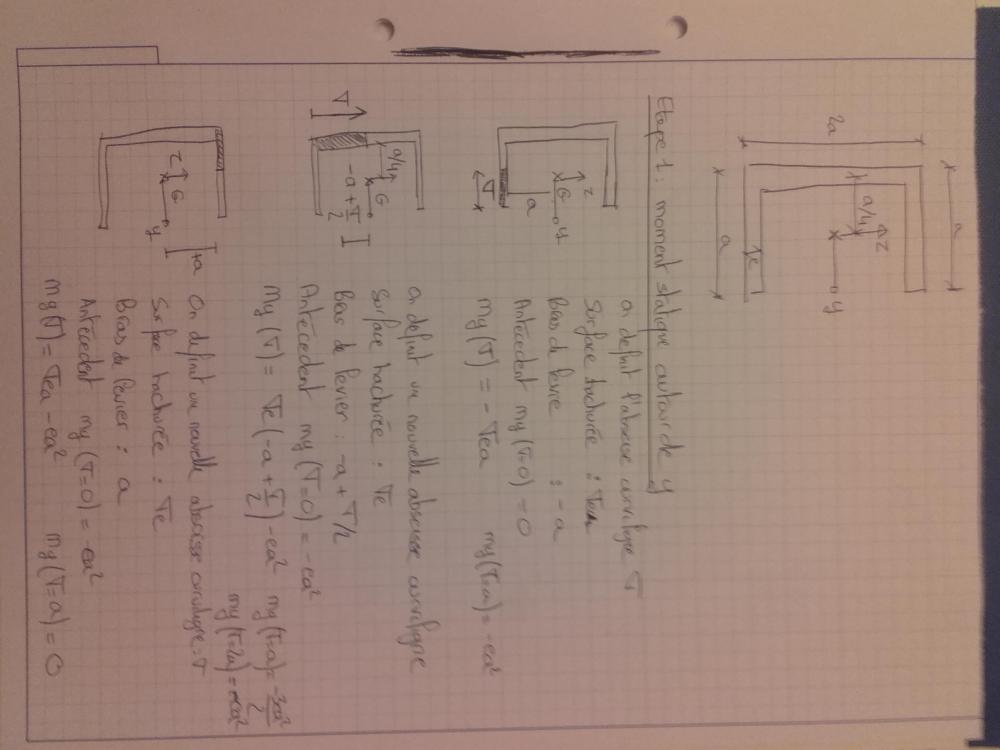 2a
a
a/4
z
y
a
e
Etape 1 : moment statique autour de y
On définit l'abscisse curviligne σ
Surface hachurée : σe
Bras de levier : -a
Antécédent my(σ=0) = 0
my(σ) = -σea my(σ=a) = -ea²
z
G
y
a
σ
On définit un nouvelle abscisse curviligne
Surface hachurée : σe
Bras de levier : -a + σ/2
Antécédent my(σ=0) = -ea²
my(σ) = σe(-a + σ/2) - ea² my(σ=a) = -3ea²/2
my(σ=2a) = -ea²
a/4
G
-a + σ/2
σ
On définit un nouvelle abscisse curviligne : σ
Surface hachurée : σe
Bras de levier : a
Antécédent my(σ=0) = -ea²
my(σ) = σea - ea² my(σ=a) = 0
z
G
y
+a